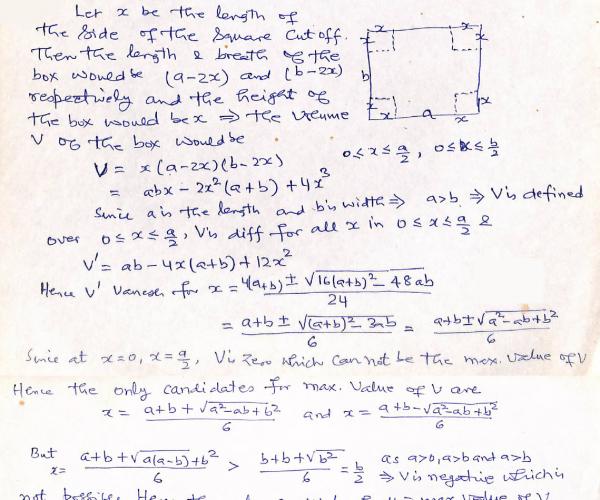 Let x be the length of
the side of the square cut off.
Then the length & breath of the
box would be (a-2x) and (b-2x)
respectively and the height of
the box would be x ⇒ the volume
V of the box would be
x x
x x
b
x x
x a x
0≤x≤a/2, 0≤x≤b/2
V = x(a-2x)(b-2x)
= abx - 2x²(a+b) + 4x³
Since a is the length and b is width ⇒ a>b ⇒ V is defined
over 0≤x≤a/2, V is diff for all x in 0≤x≤a/2 &
V' = ab - 4x(a+b) + 12x²
Hence V' vanesh for x = (4(a+b) ± √(16(a+b)² - 48ab))/24
= (a+b ± √((a+b)² - 3ab))/6 = (a+b ± √(a²-ab+b²))/6
Since at x=0, x=a/2, V is zero which can not be the max. value of V
Hence the only candidates for max. value of V are
x = (a+b+√(a²-ab+b²))/6 and x = (a+b-√(a²-ab+b²))/6
But x = (a+b+√(a(a-b)+b²))/6 > (b+b+√b²)/6 = b/2 as a>0, a>b and a>b
⇒ V is negative which is
not possible. Hence max value of V